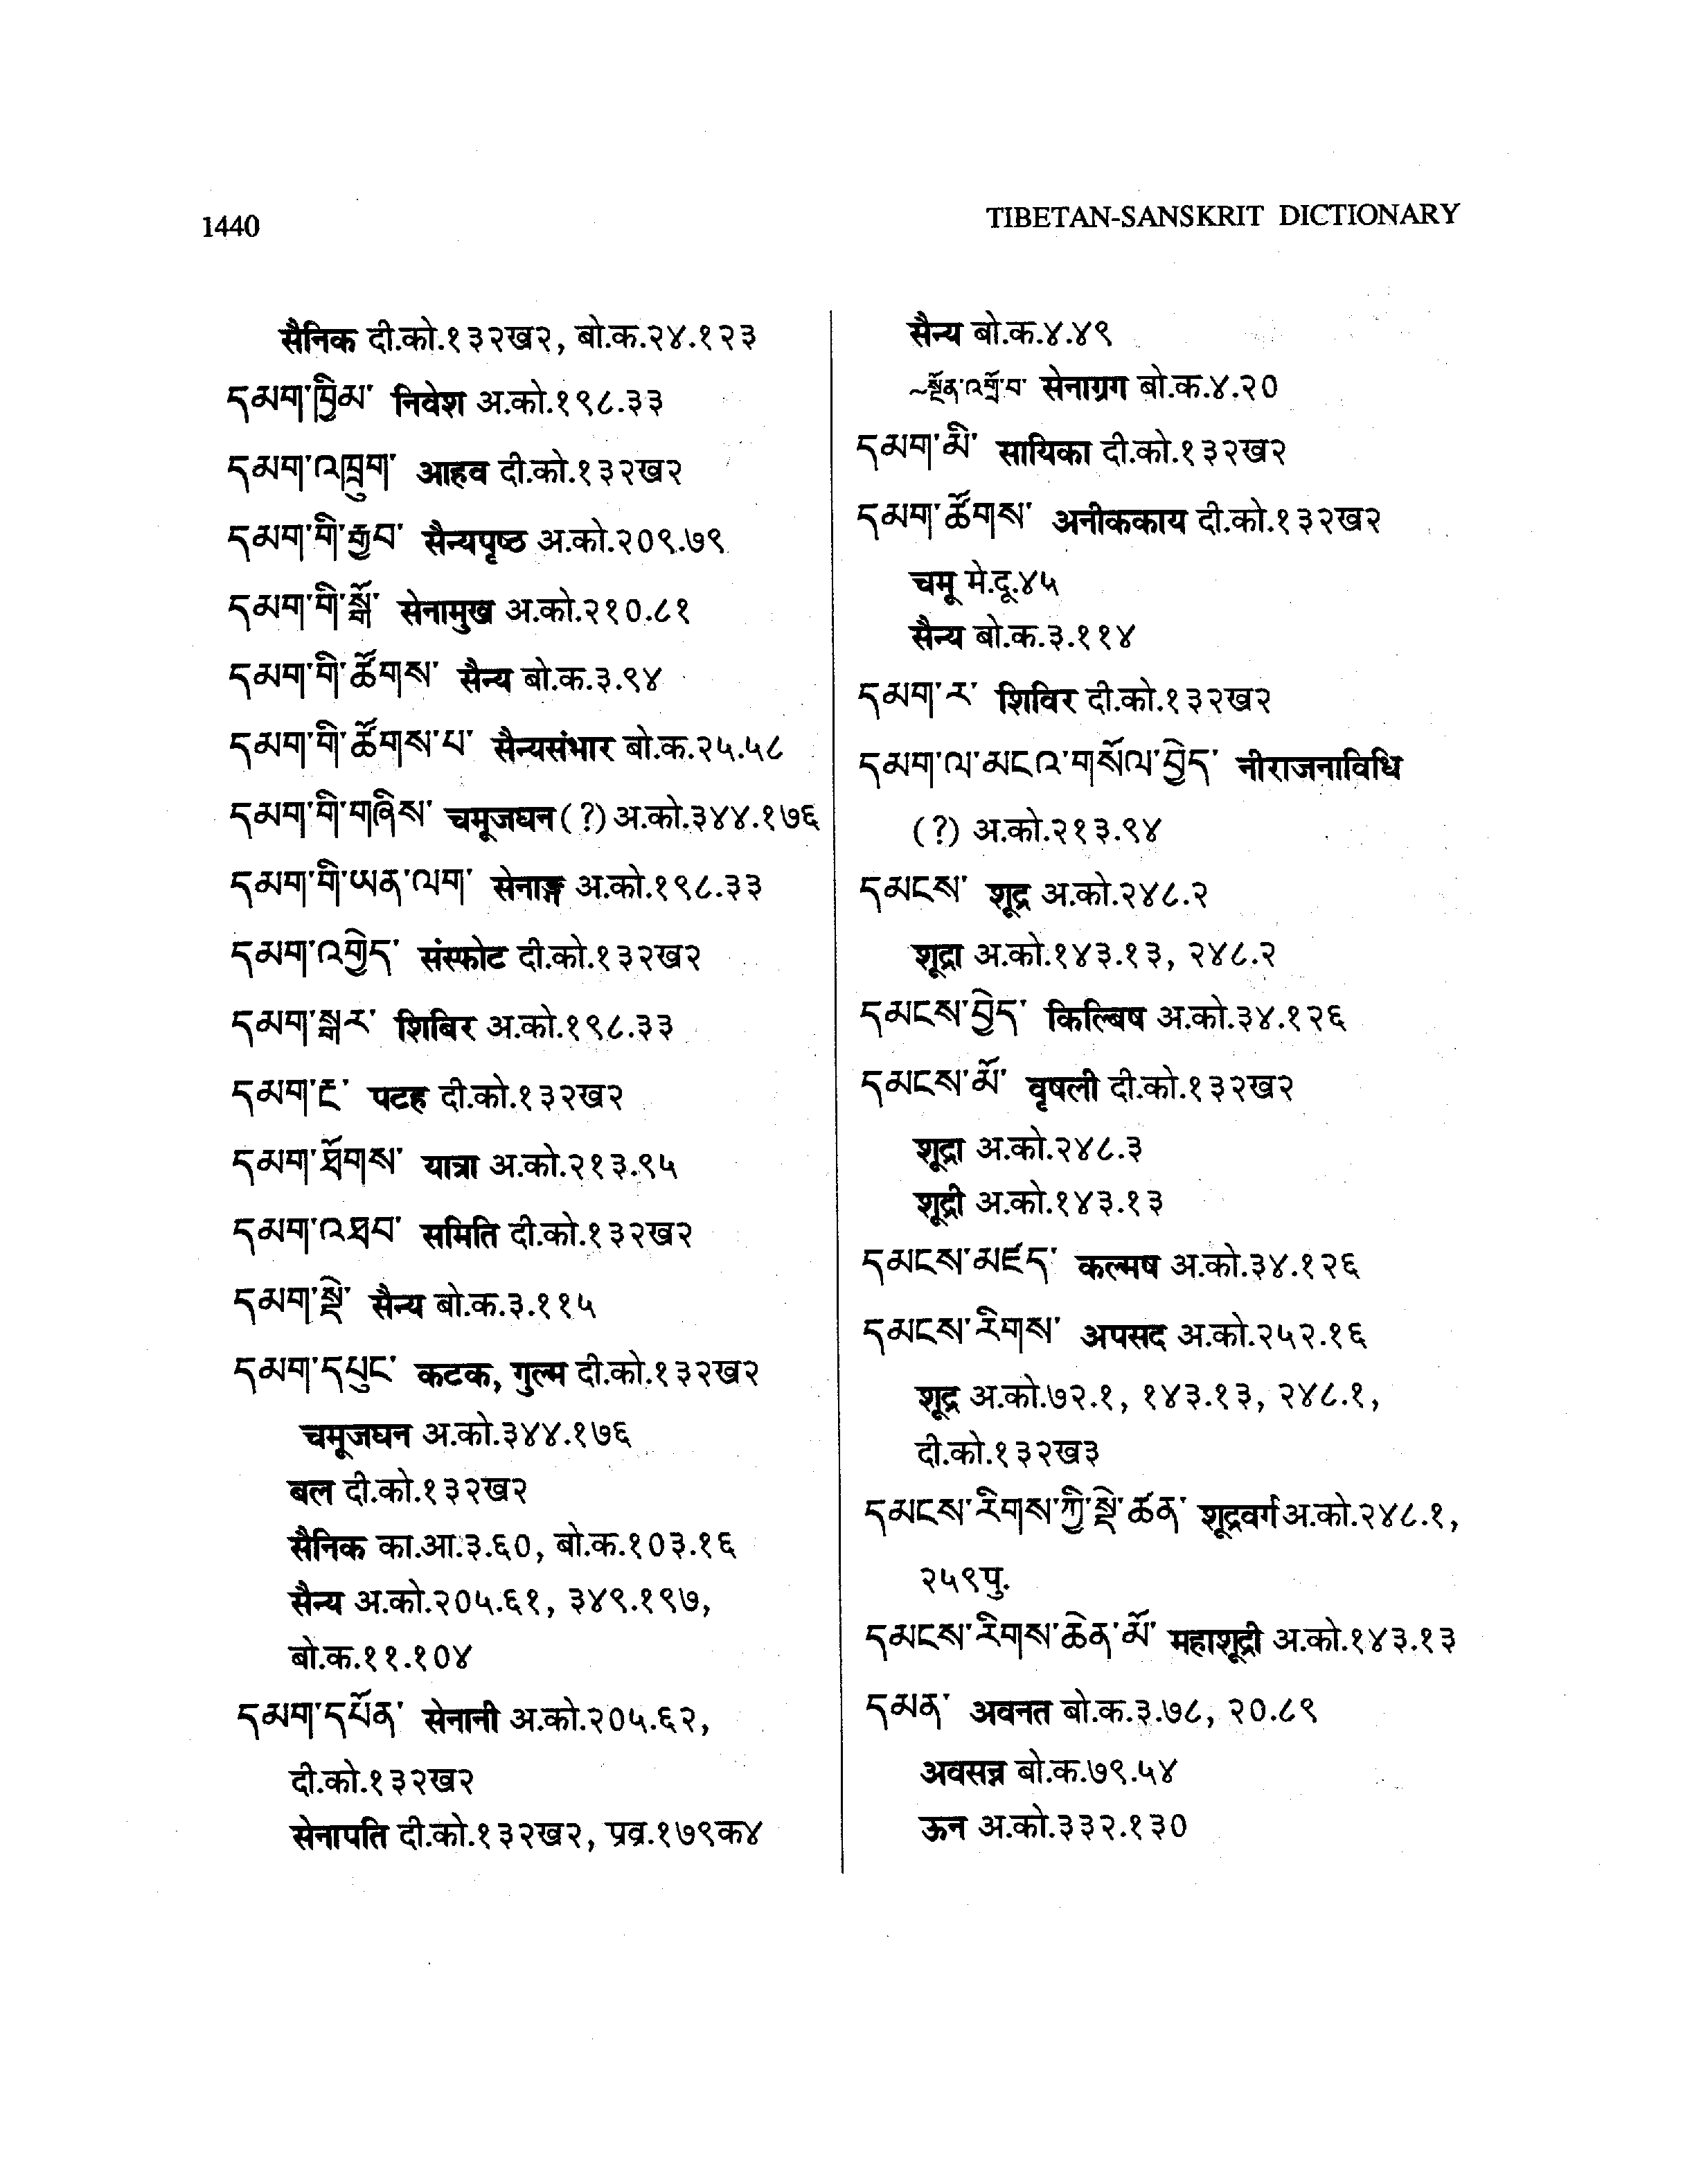 1440
TIBETAN-SANSKRIT DICTIONARY
सैनिक दी.को.१३२ख२, बो.क.२४.१२३
དམག་ཁྱིམ་ निवेश अ.को.१९८.३३
དམག་འཁྲུག་ आहव दी.को.१३२ख२
དམག་གི་རྒྱབ་ सैन्यपृष्ठ अ.को.२०९.७९
དམག་གི་སྒོ་ सेनामुख अ.को.२१०.८१
དམག་གི་ཚོགས་ सैन्य बो.क.३.९४
དམག་གི་ཚོགས་པ་ सैन्यसंभार बो.क.२५.५८
དམག་གི་གཞིས་ चमूजघन(?) अ.को.३४४.१७६
དམག་གི་ཡན་ལག་ सेनाङ्ग अ.को.१९८.३३
དམག་འགྱེད་ संस्फोट दी.को.१३२ख२
དམག་སྒར་ शिबिर अ.को.१९८.३३
དམག་རྔ་ पटह दी.को.१३२ख२
དམག་ཐོགས་ यात्रा अ.को.२१३.९५
དམག་འཐབ་ समिति दी.को.१३२ख२
དམག་སྡེ་ सैन्य बो.क.३.११५
དམག་དཔུང་ कटक, गुल्म दी.को.१३२ख२
चमूजघन अ.को.३४४.१७६
बल दी.को.१३२ख२
सैनिक का.आ.३.६०, बो.क.१०३.१६
सैन्य अ.को.२०५.६१, ३४९.१९७,
बो.क.११.१०४
དམག་དཔོན་ सेनानी अ.को.२०५.६२,
दी.को.१३२ख२
सेनापति दी.को.१३२ख२, प्रव्र.१७९क४
सैन्य बो.क.४.४९
~སྔོན་འགྲོ་བ་ सेनाग्रग बो.क.४.२०
དམག་མི་ सायिका दी.को.१३२ख२
དམག་ཚོགས་ अनीककाय दी.को.१३२ख२
चमू मे.दू.४५
सैन्य बो.क.३.११४
དམག་ར་ शिविर दी.को.१३२ख२
དམག་ལ་མངའ་གསོལ་བྱེད་ नीराजनाविधि
(?) अ.को.२१३.९४
དམངས་ शूद्र अ.को.२४८.२
शूद्रा अ.को.१४३.१३, २४८.२
དམངས་བྱེད་ किल्बिष अ.को.३४.१२६
དམངས་མོ་ वृषली दी.को.१३२ख२
शूद्रा अ.को.२४८.३
शूद्री अ.को.१४३.१३
དམངས་མཛད་ कल्मष अ.को.३४.१२६
དམངས་རིགས་ अपसद अ.को.२५२.१६
शूद्र अ.को.७२.१, १४३.१३, २४८.१,
दी.को.१३२ख३
དམངས་རིགས་ཀྱི་སྡེ་ཚན་ शूद्रवर्ग अ.को.२४८.१,
२५९पु.
དམངས་རིགས་ཆེན་མོ་ महाशूद्री अ.को.१४३.१३
དམན་ अवनत बो.क.३.७८, २०.८९
अवसन्न बो.क.७९.५४
ऊन अ.को.३३२.१३०